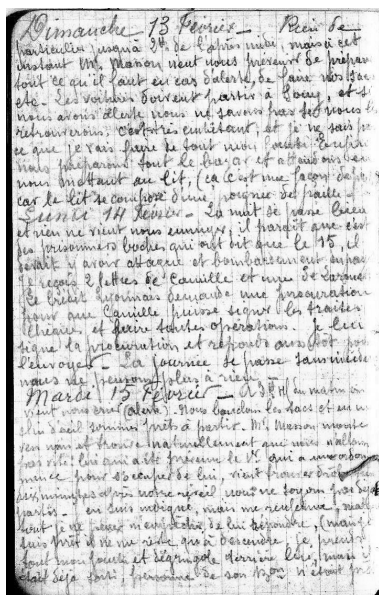 Dimanche 13 Février - Rien de
particulier jusqu'à 2h de l'après midi, mais à cet
instant Mr Masson vient nous prévenir de préparer
tout ce qu'il faut en cas d'alerte, de faire nos sacs
etc. Les voitures doivent partir à et si
nous avons alerte nous ne savons pas si nous les
retrouverons, c'est très embêtant, et je ne sais pas
ce que je vais faire de tout mon Enfin
nous préparons tout le bazar et attendons en
nous mettant au lit, (ça c'est une façon de
car le lit se compose d'une poignée de paille
Lundi 14 Février - La nuit se passe bien
et rien ne vient nous ennuyer, il paraît que c'est
des prisonniers boches qui ont dit que le 15, il
devait y avoir attaque et bombardement
Je reçois 2 lettres de Camille et une de
Le Crédit Lyonnais demande une procuration
pour que Camille puisse signer les traites
chèques et faire toutes opérations. Je lui
signe la procuration et réponds aussitôt pour
l'envoyer - La journée se passe sans
nous ne pensons plus à rien -
Mardi 15 Février - A du matin on
vient nous crier (alerte). Nous bouclons les sacs et en un
clin d'œil sommes prêts à partir. Mr Masson monte
et trouve naturellement que nous n'allons
pas vite, lui qui a été prévenu le 1er qui a une ordon-
nance pour s'occuper de lui, vient
minutes après notre réveil nous ne soyons pas déjà
partis. J'en suis indigné, mais me
tout je ne peux m'empêcher de lui répondre, (mais je
suis prêt il ne me reste qu'à descendre, je prends
tout mon fourbi et dégringole derrière lui, mais il
était déjà parti, personne de son n'était